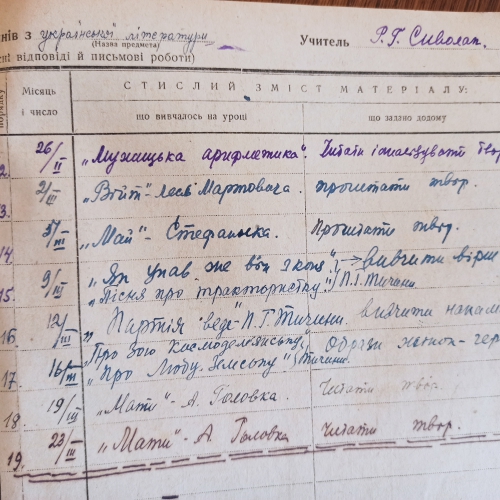 нів з української літератури
(Назва предмета)
Учитель Р. Г. Сиволап.
ні відповіді й письмові роботи)
порядку
Місяць і число
СТИСЛИЙ ЗМІСТ МАТЕРІАЛУ:
що вивчалось на уроці
що задано додому
2. 26/II „Мужицька арифметика". Читати і аналізувати твор
13. 2/III „Войт" - Лесь Мартовича. прочитати твор.
14. 5/III „Май" - Стефаника. Прочитати твор.
15. 9/III „Як упав же він з коня" → вивчити вірш
„Пісня про трактористку" П. Г. Тичини.
16. 12/III „Партія веде" П. Г. Тичини. вивчити напам
17. 16/III „Про Зою Космодемянську" Образи жінок-гер
„Про Любу Земську" Тичини.
18. 19/III „Мати" - А. Головка. Читати твор.
19. 23/III „Мати" - А. Головка читати твор.